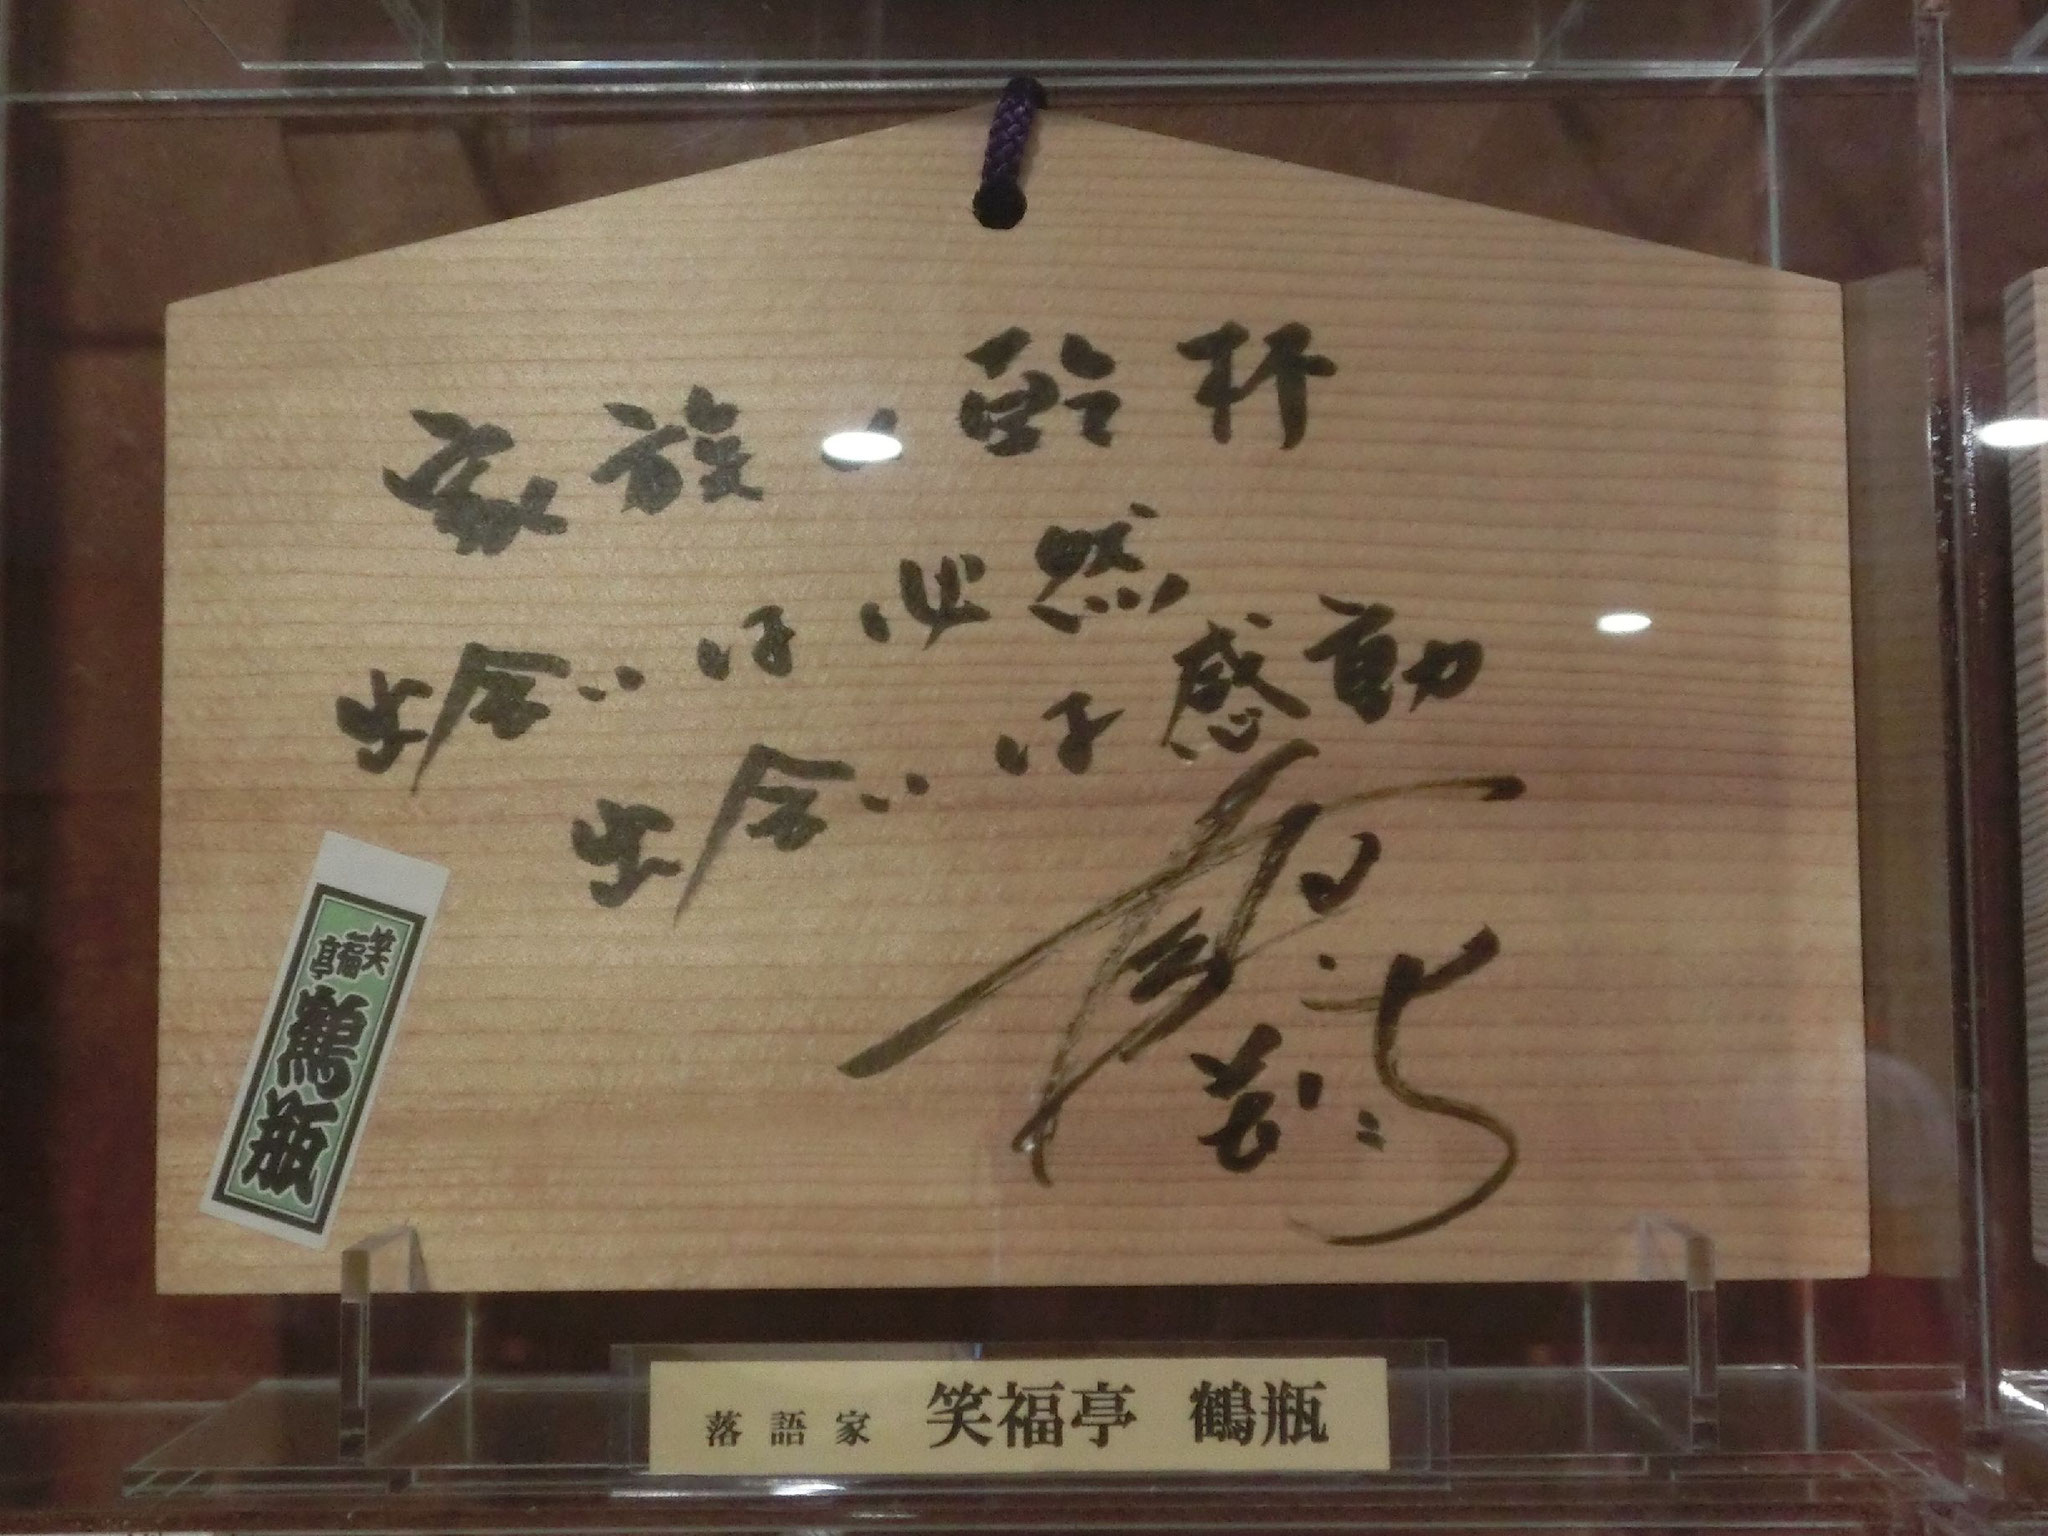 家族に乾杯
出会いは必然
出会いは感動
笑福亭
鶴瓶
落語家 笑福亭 鶴瓶